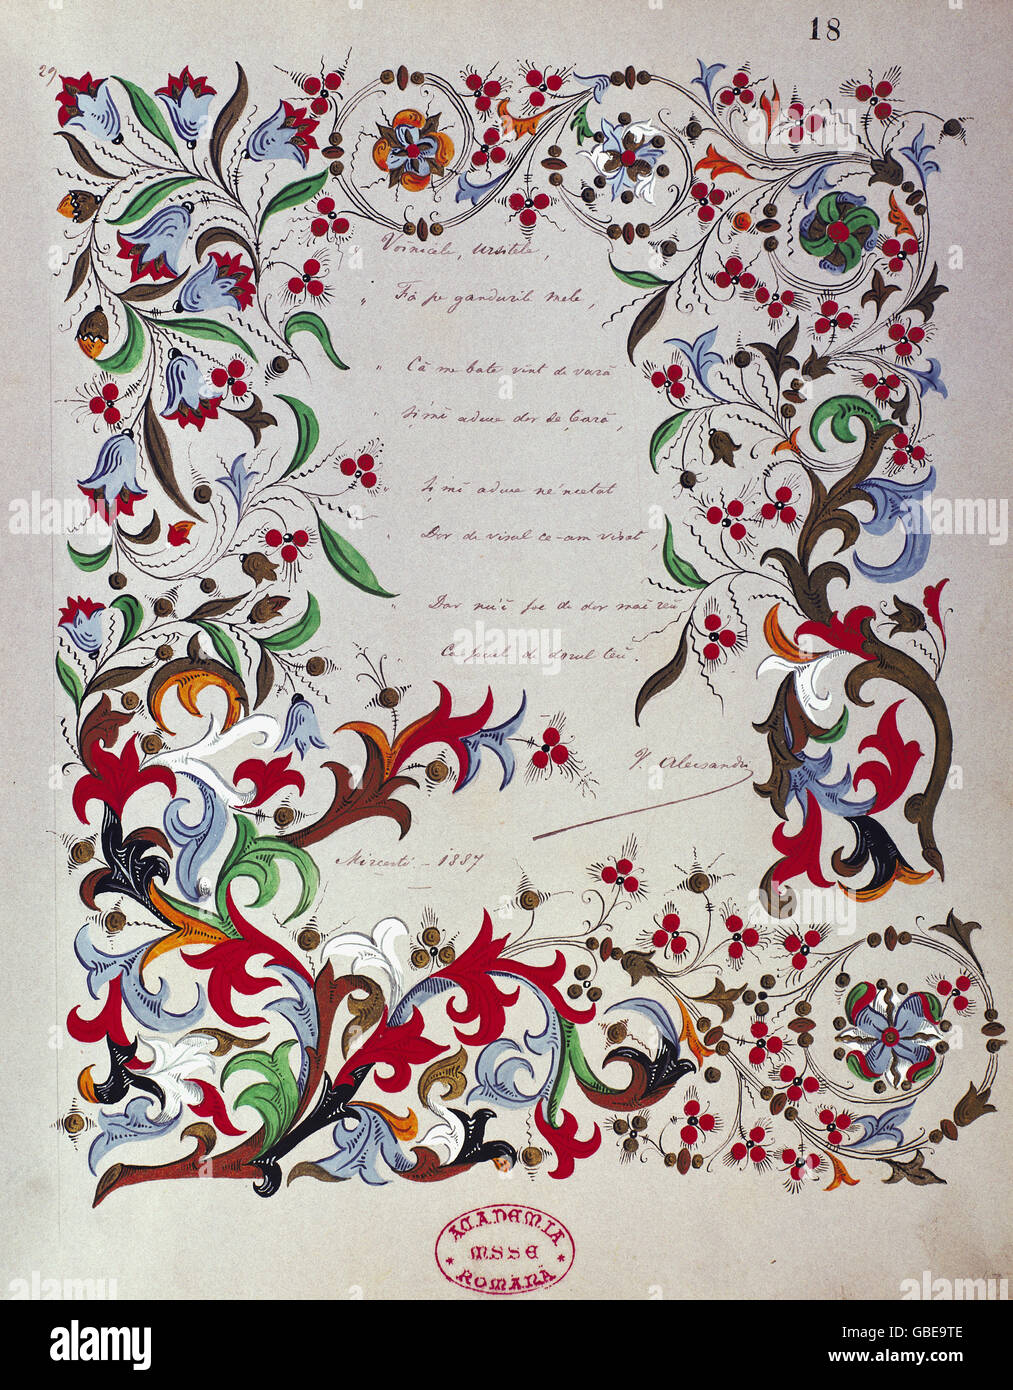 18
29
Voinicele, ursitele,
„ Fă pe gandurile mele,
„ Că me bate vînt de vară
„ Și'mĭ aduce dor de țară,
„ Șĭ mĭ aduce ne'ncetat
„ Dor de visul ce-am visat,
„ Dar nu'ĭ foc de dor maĭ rĕŭ
Ca focul de dorul tĕŭ.
V. Alecsandri
Mircesti – 1887
ACADEMIA
MSSE
ROMÂNĂ
alamy
Image ID: GBE9TE
www.alamy.com